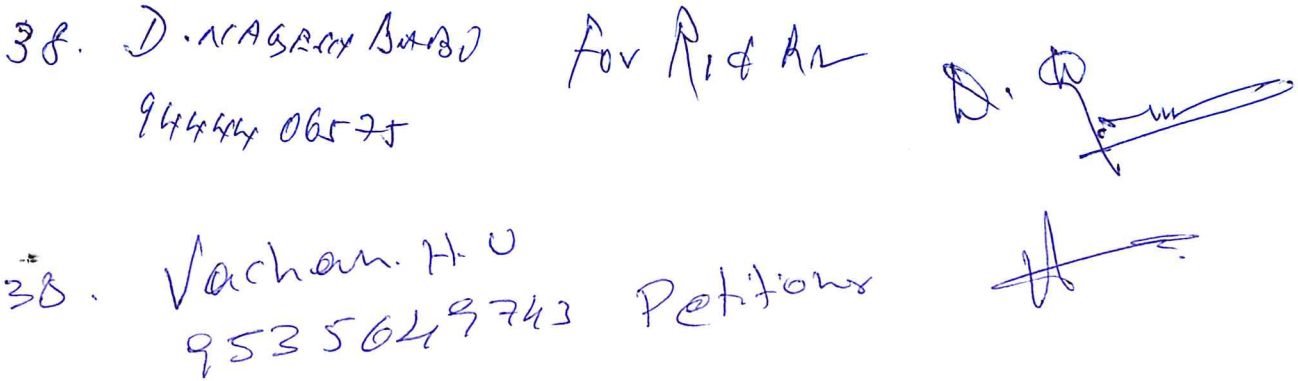 38. D. NAGENX BABU For R1 & R2
94444 06575
38. Vachan. H. U
9535649743 Petitioner